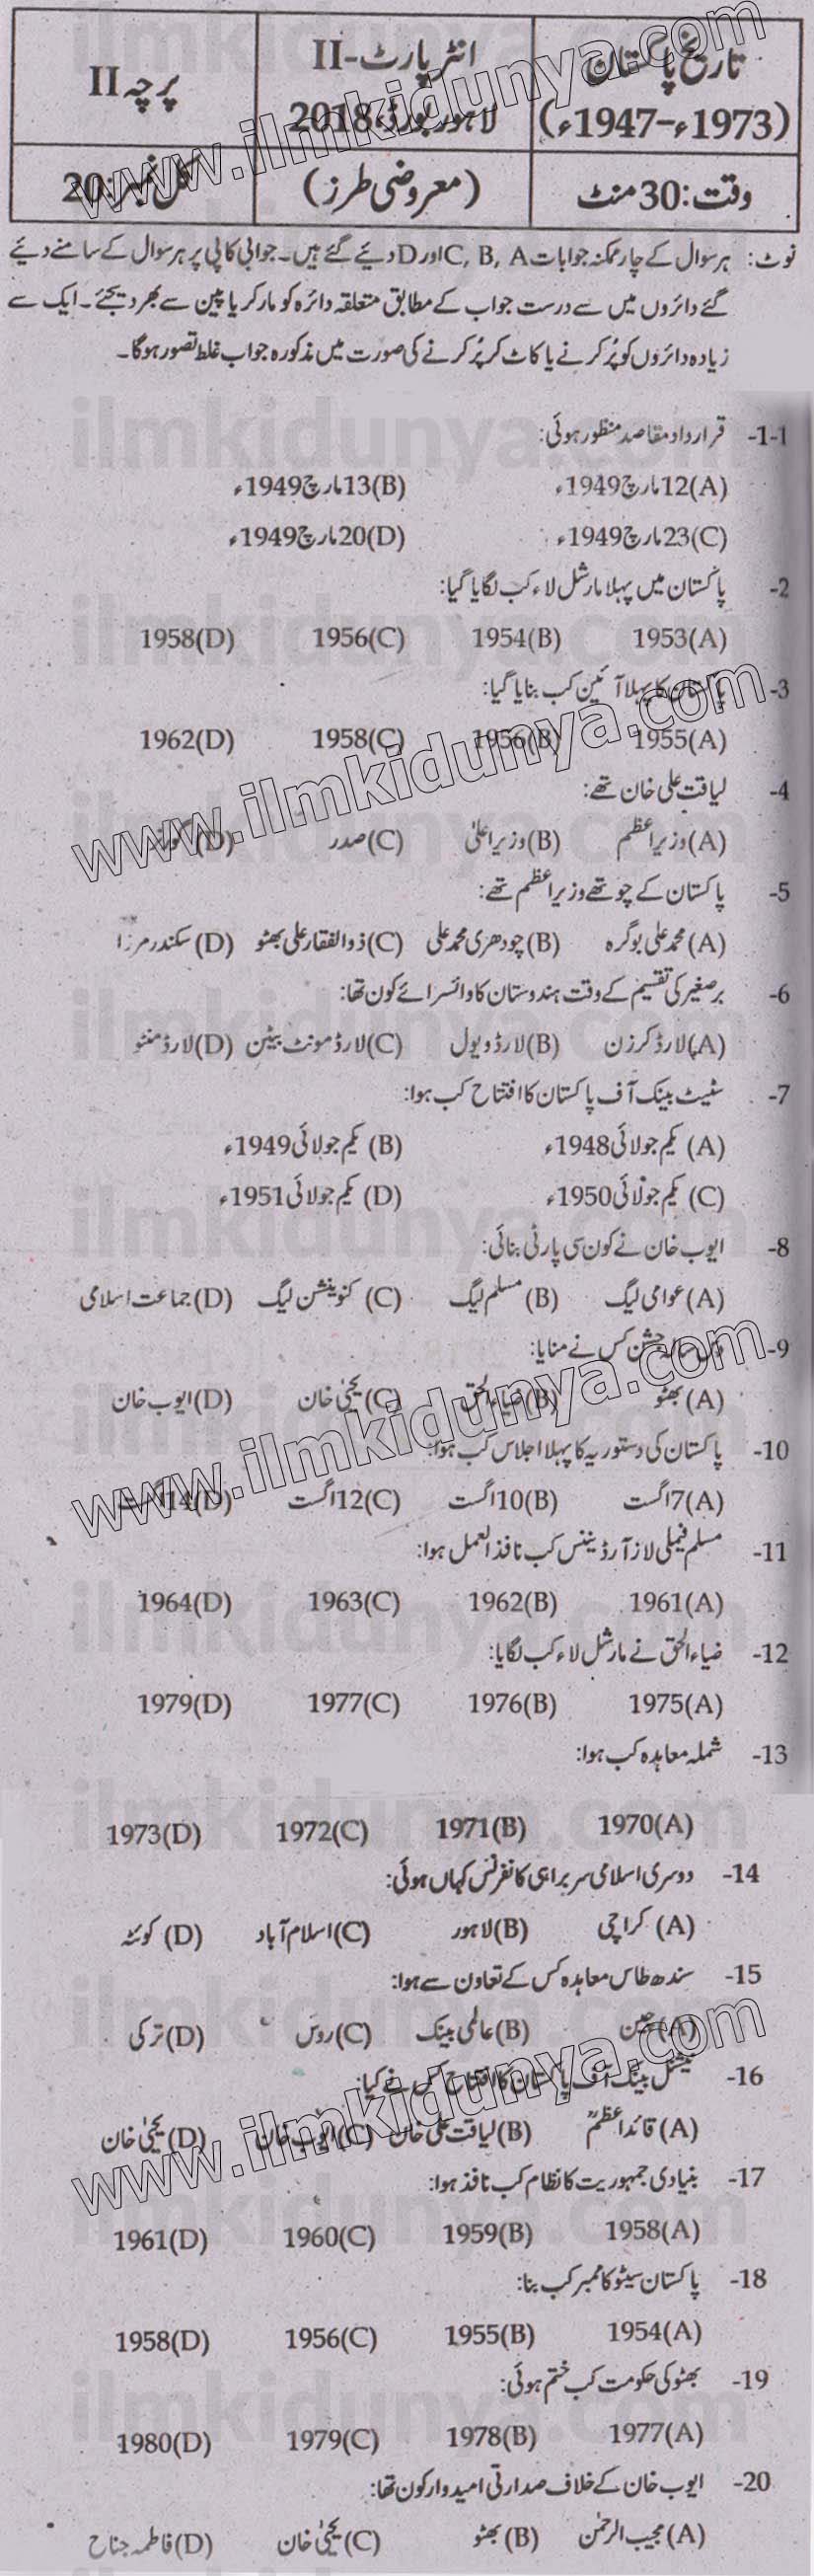 تاریخ پاکستان
(1947ء–1973ء)
انٹر پارٹ-II
لاہور بورڈ، 2018ء
پرچہ II
وقت: 30 منٹ
(معروضی طرز)
کل نمبر: 20
نوٹ: ہر سوال کے چار ممکنہ جوابات C, B, A اور D دیئے گئے ہیں۔ جوابی کاپی پر ہر سوال کے سامنے دیئے
گئے دائروں میں سے درست جواب کے مطابق متعلقہ دائرہ کو مارکر یا پین سے بھر دیجئے۔ ایک سے
زیادہ دائروں کو پُر کرنے یا کاٹ کر پُر کرنے کی صورت میں مذکورہ جواب غلط تصور ہوگا۔
1-1- قرارداد مقاصد منظور ہوئی:
(A) 12 مارچ 1949ء (B) 13 مارچ 1949ء
(C) 23 مارچ 1949ء (D) 20 مارچ 1949ء
2- پاکستان میں پہلا مارشل لاء کب لگایا گیا:
(A) 1953 (B) 1954 (C) 1956 (D) 1958
3- پاکستان کا پہلا آئین کب بنایا گیا:
(A) 1955 (B) 1956 (C) 1958 (D) 1962
4- لیاقت علی خان تھے:
(A) وزیراعظم (B) وزیراعلیٰ (C) صدر (D) گورنر
5- پاکستان کے چوتھے وزیراعظم تھے:
(A) محمد علی بوگرہ (B) چودھری محمد علی (C) ذوالفقار علی بھٹو (D) سکندر مرزا
6- برصغیر کی تقسیم کے وقت ہندوستان کا وائسرائے کون تھا:
(A) لارڈ کرزن (B) لارڈ ویول (C) لارڈ مونٹ بیٹن (D) لارڈ منٹو
7- سٹیٹ بینک آف پاکستان کا افتتاح کب ہوا:
(A) یکم جولائی 1948ء (B) یکم جولائی 1949ء
(C) یکم جولائی 1950ء (D) یکم جولائی 1951ء
8- ایوب خان نے کون سی پارٹی بنائی:
(A) عوامی لیگ (B) مسلم لیگ (C) کنونشن لیگ (D) جماعت اسلامی
9- دس سالہ جشن کس نے منایا:
(A) بھٹو (B) ضیاء الحق (C) یحییٰ خان (D) ایوب خان
10- پاکستان کی دستوریہ کا پہلا اجلاس کب ہوا:
(A) 7 اگست (B) 10 اگست (C) 12 اگست (D) 14 اگست
11- مسلم فیملی لاز آرڈیننس کب نافذ العمل ہوا:
(A) 1961 (B) 1962 (C) 1963 (D) 1964
12- ضیاء الحق نے مارشل لاء کب لگایا:
(A) 1975 (B) 1976 (C) 1977 (D) 1979
13- شملہ معاہدہ کب ہوا:
(A) 1970 (B) 1971 (C) 1972 (D) 1973
14- دوسری اسلامی سربراہی کانفرنس کہاں ہوئی:
(A) کراچی (B) لاہور (C) اسلام آباد (D) کوئٹہ
15- سندھ طاس معاہدہ کس کے تعاون سے ہوا:
(A) چین (B) عالمی بینک (C) روس (D) ترکی
16- نیشنل بینک آف پاکستان کا افتتاح کس نے کیا:
(A) قائداعظمؒ (B) لیاقت علی خان (C) ایوب خان (D) یحییٰ خان
17- بنیادی جمہوریت کا نظام کب نافذ ہوا:
(A) 1958 (B) 1959 (C) 1960 (D) 1961
18- پاکستان سیٹو کا ممبر کب بنا:
(A) 1954 (B) 1955 (C) 1956 (D) 1958
19- بھٹو کی حکومت کب ختم ہوئی:
(A) 1977 (B) 1978 (C) 1979 (D) 1980
20- ایوب خان کے خلاف صدارتی امیدوار کون تھا:
(A) مجیب الرحمٰن (B) بھٹو (C) یحییٰ خان (D) فاطمہ جناح
www.ilmkidunya.com
www.ilmkidunya.com
www.ilmkidunya.com
www.ilmkidunya.com